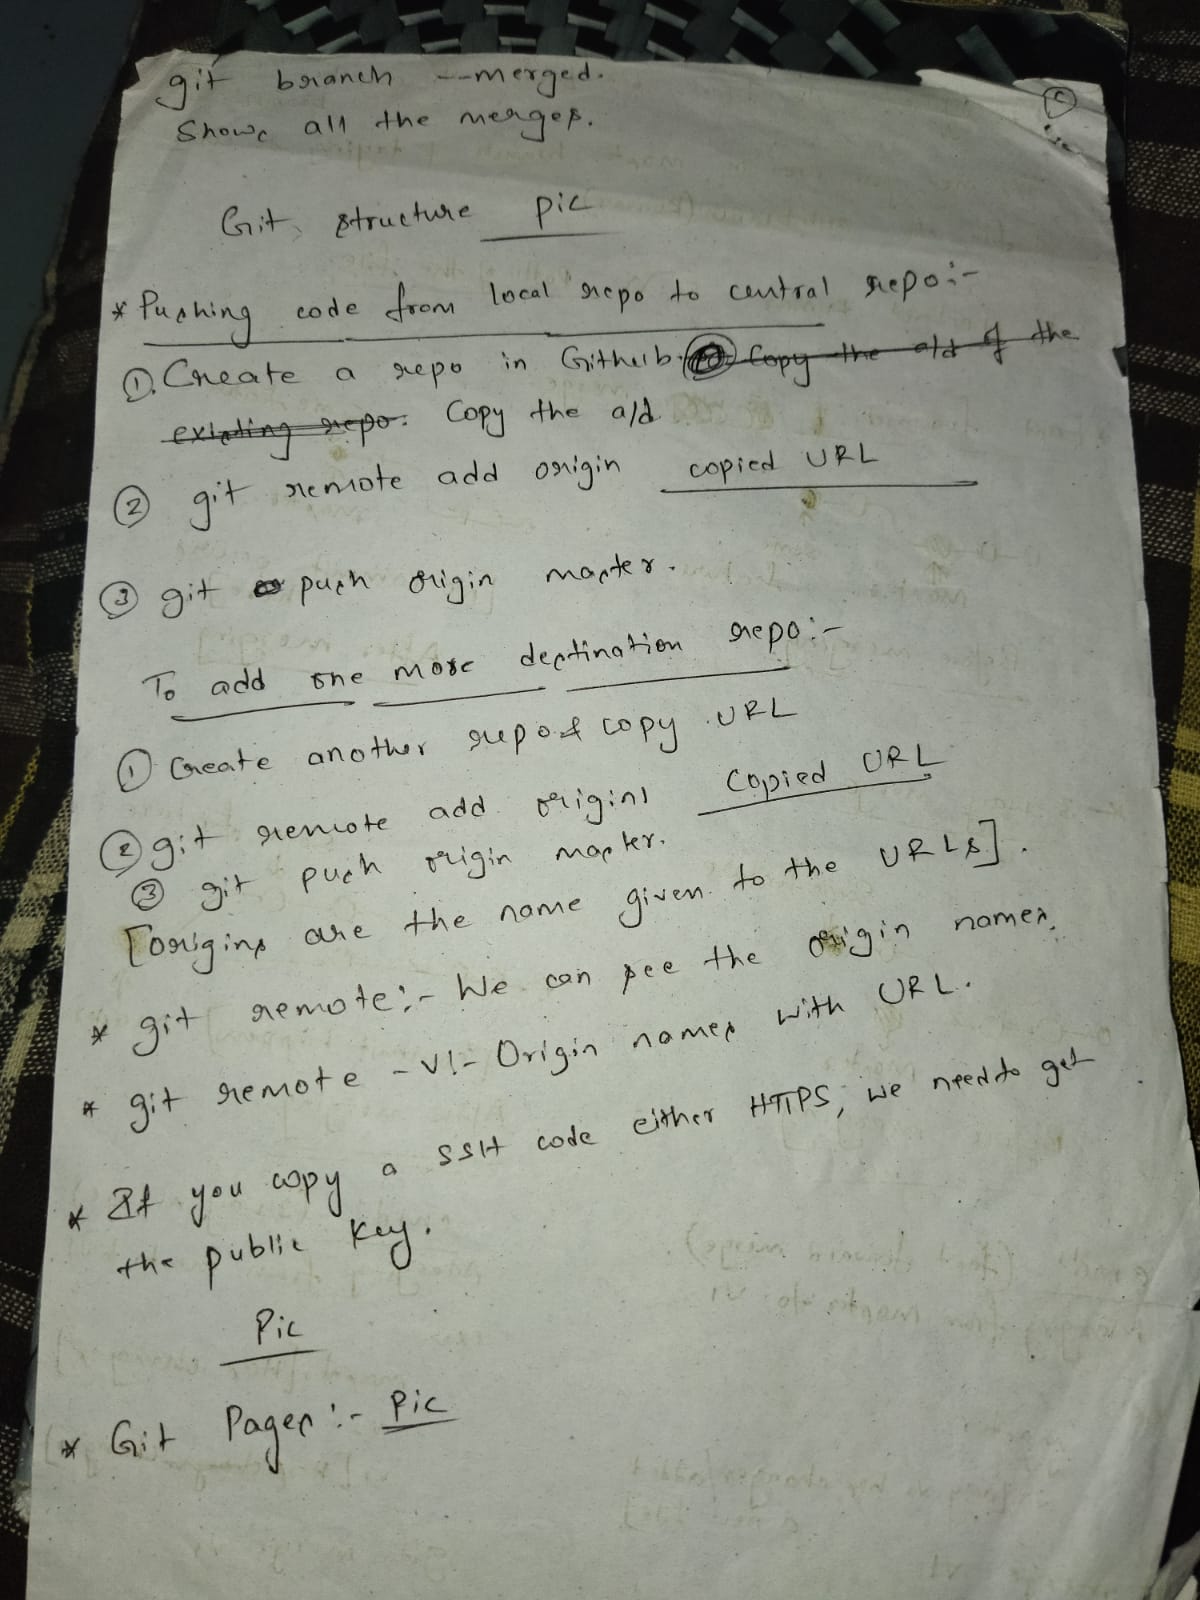 git branch --merged.
Shows all the merges.
Git structure pic
* Pushing code from local repo to central repo:-
①. Create a repo in Github. Copy the a/d of the
existing repo. Copy the a/d.
② git remote add origin copied URL
③ git push origin master.
To add one more destination repo:-
① Create another repo & copy URL
② git remote add origin1 Copied URL
③ git push origin master.
[origins are the name given to the URLs].
* git remote:- We can see the origin names.
* git remote -v:- Origin names with URL.
* If you copy a SSH code either HTTPS, we need to get
the public key.
Pic
* Git Pages:- Pic